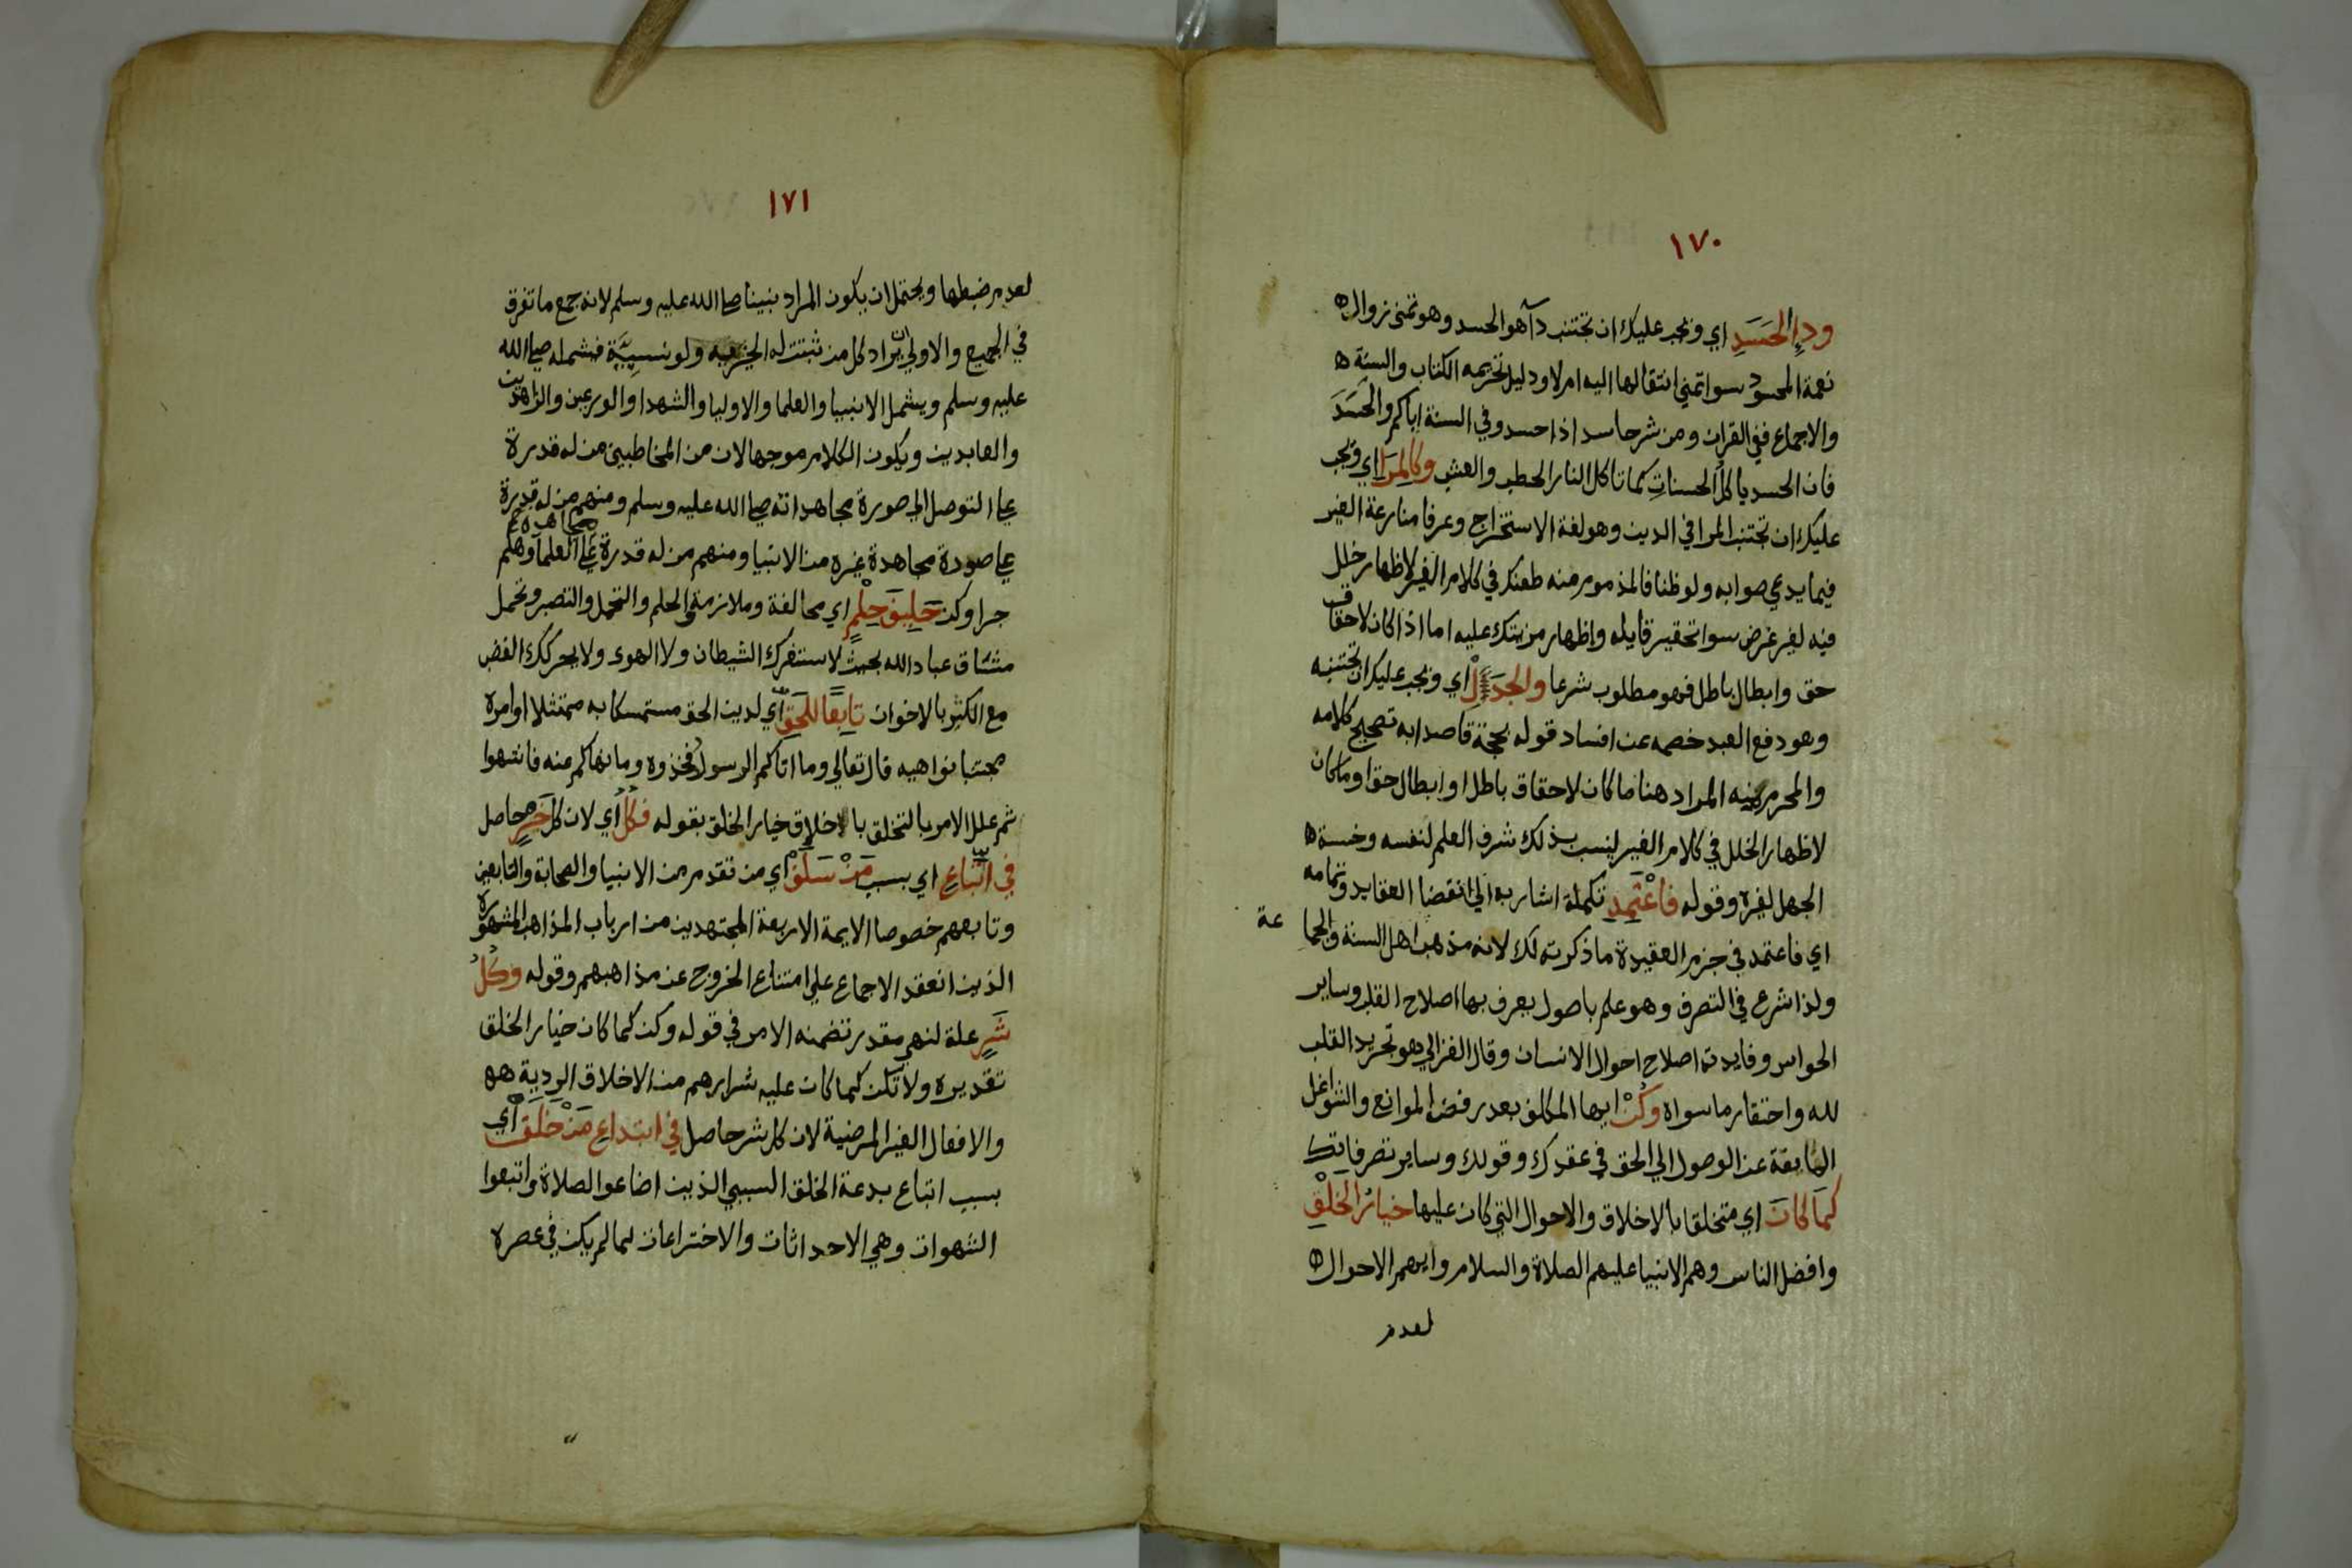 ١٧٠
وداءِ الحَسَدِ اي ويجب عليك ان تجتنب دآ هو الحسد وهو تمني زوال ه
نعمة المحسود سوا تمني انتقالها اليه ام لا ودليل تحريمه الكتاب والسنة ه
والاجماع ففي القران ومن شر حاسد اذا حسد وفي السنة اياكم والحَسَدَ
فان الحسد ياكل الحسناتِ كما تاكل النار الحطب والعشب وكالمِرَا اي ويجب
عليك ان تجتنب المرا في الدين وهو لغة الاستخراج وعرفا منازعة الغير
فيما يدعي صوابه ولو ظنا فالمذموم منه طعنك في كلام الغير لاظهار خلل
فيه لغير غرض سوا تحقير قايله واظهار مزيتك عليه اما اذا كان لاحقاق
حق وابطال باطل فهو مطلوب شرعا والجَدَلْ اي ويجب عليك ان تجتنبه
وهو دفع العبد خصمه عن افساد قوله بحجة قاصدا به تصحيح كلامه
والمحرم منه المراد هنا ما كان لاحقاق باطل او ابطال حق او ما كان
لاظهار الخلل في كلام الغير لينسب بذلك شرف العلم لنفسه وخسة ه
الجهل لغيره وقوله فاعْتَمِدِ تكملة اشار به الي انقضا العقايد وتمامه
اي فاعتمد في جزم العقيدة ما ذكرته لك لانه مذهب اهل السنة والجما عة
ولذا شرع في التصوف وهو علم باصول يعرف بها اصلاح القلب وساير
الحواس وفايدته اصلاح احوال الانسان وقال الغزالي هو تجريد القلب
لله واحتقار ما سواه وكُنْ ايها المكلف بعد رفض الموانع والشواغل
المايقة عن الوصول الي الحق في عقدك وقولك وساير تصرفاتك
كمَا كانَ اي متخلقا بالاخلاق والاحوال التي كان عليها خيارُ الخَلْقِ
وافضل الناس وهم الانبيا عليهم الصلاة والسلام وابهم الاحوال ه
لعدم
١٧١
لعدم ضبطها ويحتمل ان يكون المراد نبينا صلى الله عليه وسلم لانه جمع ما تفرق
في الجميع والاولي ان يراد كل من ثبتت له الخيرية ولو نسبِيَّة فيشمله صلى الله
عليه وسلم ويشمل الانبيا والعلما والاوليا والشهدا والورعين والزاهدين
والعابدين ويكون الكلام موجها لان من المخاطبين من له قدرة
على التوصل الي صورة مجاهداته صلى الله عليه وسلم ومنهم من له قدرة
على صورة مجاهدة غيره من الانبيا ومنهم من له قدرة على مجاهدة العلما وهلم
جرا وكن حَلِيفَ حِلْمٍ اي محالفة وملازمة الحلم والتحمل والتصبر وتحمل
مشاق عباد الله بحيث لا ستفزك الشيطان ولا الهوى ولا يحركك الغضب
مع الكثير بالاخوان تابِعًا للحَقِ اي لدين الحق مستمسكا به ممتثلا اوامره
مجتنبا نواهيه قال تعالي وما اتاكم الرسول فخذوه وما نهاكم عنه فانتهوا
ثم علل الامر بالتخلق باخلاق خيار الخلق بقوله فكلُّ اي لان كل خَيرٍ حاصل
في اتِّباعِ اي بسبب مَنْ سَلَفْ اي من تقدم من الانبيا والصحابة والتابعين
وتابعهم خصوصا الايمة الاربعة المجتهدين من ارباب المذاهب المشهوره
الذين انعقد الاجماع علي امتناع الخروج عن مذاهبهم وقوله وكُلُّ
شَرٍ علة لنهي مقدر تضمنه الامر في قوله وكن كما كان خيار الخلق
تقديره ولا تكن كما كان عليه شرارهم من الاخلاق الردية هه
والافعال الغير المرضية لان كل شر حاصل في ابتداعِ مَنْ خلَفَ اي
بسبب اتباع بدعة الخلف السيي الذين اضاعوا الصلاة واتبعوا
الشهوات وهي الاحداثات والاختراعات لما لم يكن في عصره